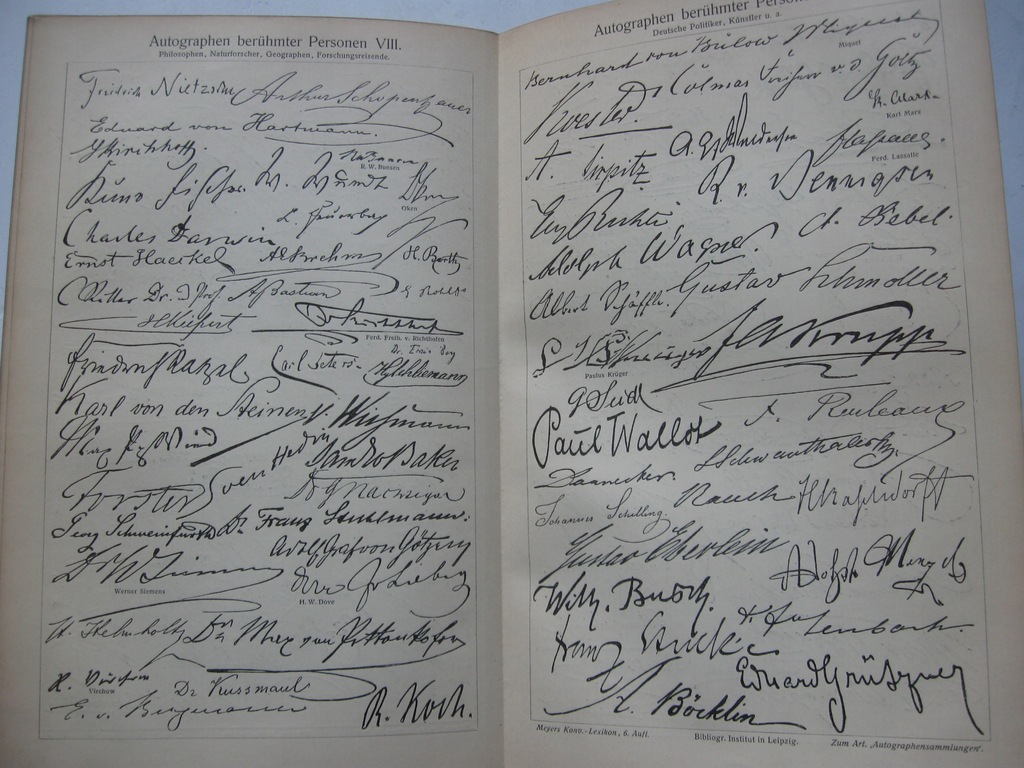 Autographen berühmter Personen VIII.
Philosophen, Naturforscher, Geographen, Forschungsreisende.
Friedrich Nietzsche Arthur Schopenhauer
Eduard von Hartmann.
GKirchhoff.
R. W. Bunsen
Kuno Fischer W. Wundt
Oken
L. Feuerbach
Charles Darwin
Ernst Haeckel AEBrehm H. Barth
Ritter Dr. Prof ABastian G Rohlfs
HKiepert
Ferd. Freih. v. Richthofen
Friedrich Ratzel Carl Peters HySchliemann
Karl von den Steinen H. Wissmann
Sven Hedin
Sam W Baker
Forster
Georg Schweinfurth Dr. Franz Stuhlmann.
Adolf Graf von Götzen
Werner Siemens
Dove
H. W. Dove
H. Helmholtz Dr Max von Pettenkofer
R. Virchow
Virchow
Dr Kussmaul
E. v. Bergmann
R. Koch.
Autographen berühmter
Deutsche Politiker, Künstler u. a.
Bernhard von Bülow Miquel
Miquel
Koester Dr Colmar Freiherr v. d. Goltz
K. Marx
Karl Marx
A. Tirpitz
Ferd. Lassalle
R. v. Bennigsen
Eug Richter
Adolph Wagner. A. Bebel.
Albert Schäffle. Gustav Schmoller
Paulus Krüger
F A Krupp
G Seidl
Paul Wallot F. Reuleaux
Dannecker. LSchwanthaler
Johannes Schilling. Rauch
Gustav Eberlein
Adolph Menzel
Wilh. Busch.
Franz Stuck
Eduard Grützner
A. Böcklin
Meyers Konv.-Lexikon, 6. Aufl.
Bibliogr. Institut in Leipzig.
Zum Art. „Autographensammlungen“.